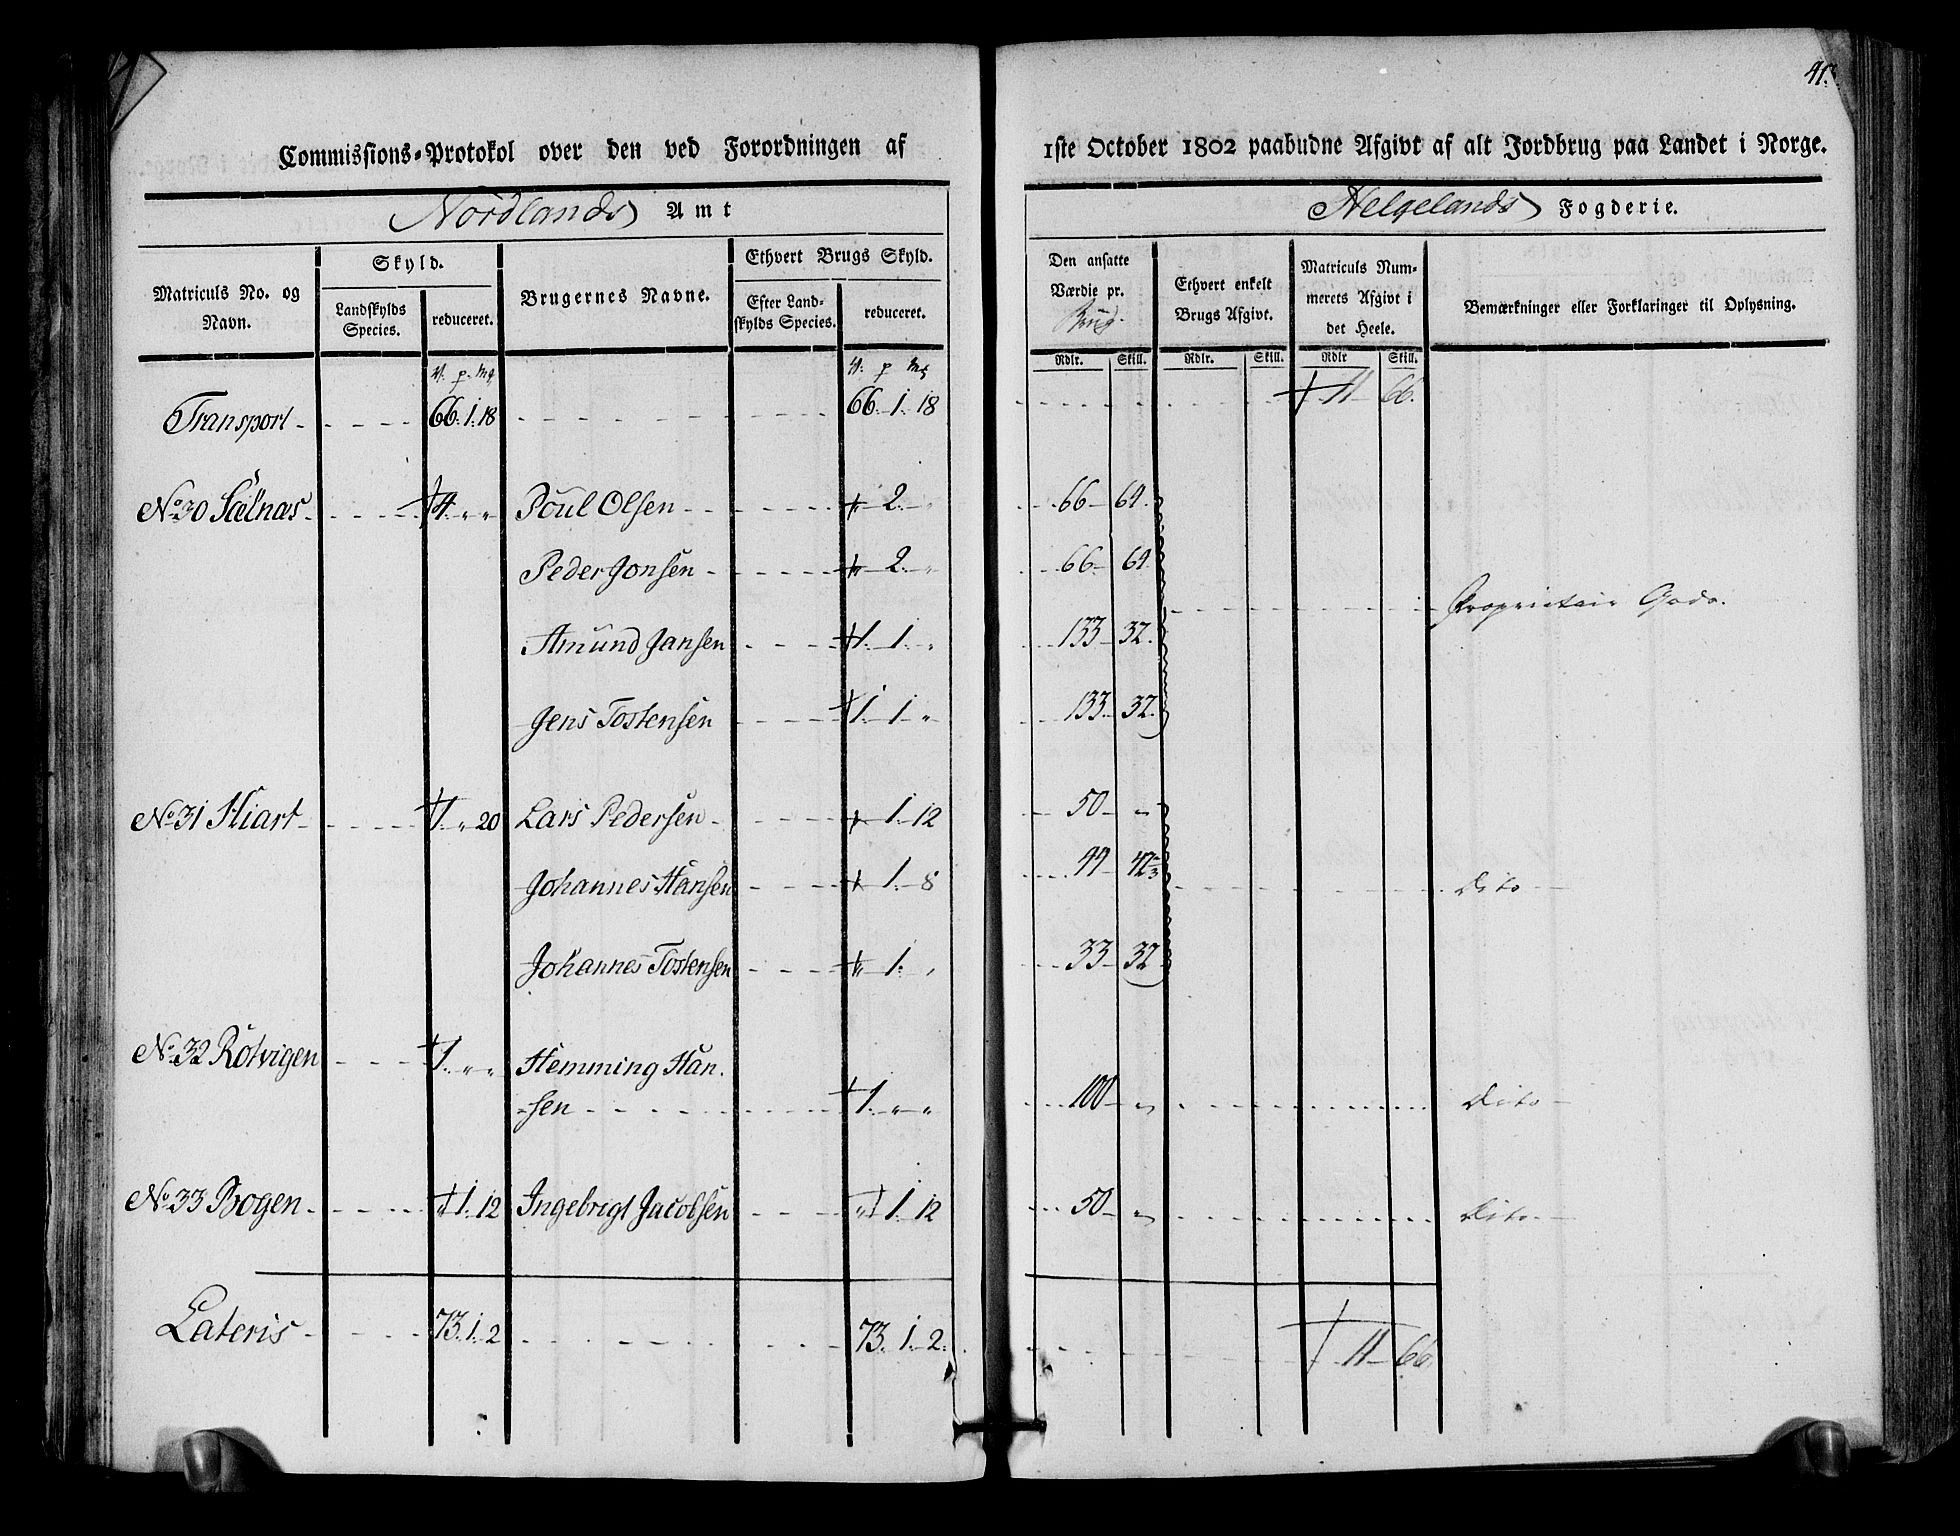 41.
Commissions-Protokol over den ved Forordningen af 1ste October 1802 paabudne Afgivt af alt Jordbrug paa Landet i Norge.
Nordlands Amt Helgelands Fogderie.
Matriculs No. og Navn. Skyld. Landskylds Species. reduceret. Brugernes Navne. Ethvert Brugs Skyld. Efter Landskylds Species. reduceret. Den ansatte Værdie pr. Brug. Ethvert enkelt Brugs Afgivt. Matriculs Nummerets Afgivt i det Heele. Bemærkninger eller Forklaringer til Oplysning.
V. p. mk V. p mk Rdlr. Skill. Rdlr. Skill. Rdlr Skill.
Transport 66. 1. 18 66. 1. 18 11 66.
No 30 Sælnæs 4. " " Poul Olsen " 2. " 66 64.
Peder Jonsen " 2. " 66 64.
Proprietair Gods.
Amund Jansen 1. 1. " 133 32.
Jens Tostensen 1. 1 " 133 32.
No 31 Hiart 1. " 20 Lars Pedersen " 1. 12 50 "
Johannes Hansen " 1. 8 44 42 2/3 Dito
Johannes Tostensen " 1. " 33 32
No 32 Rötvigen 1. " " Hemming Han-
-sen 1. " " 100 " Dito
No 33 Bogen " 1. 12 Ingebrigt Jacobsen " 1. 12 50 " Dito
Lateris 73. 1. 2 73. 1. 2. 11 66.